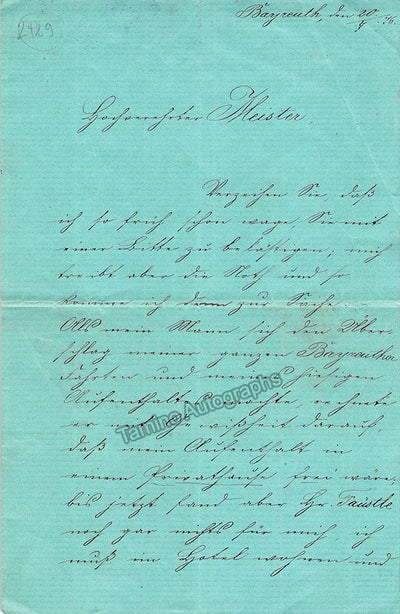 2429
Bayreuth, den 20/5 76.
Hochverehrter Meister,
Verzeihen Sie, daß
ich so früh schon wage, Sie mit
einer Bitte zu belästigen; mich
treibt aber die Noth und so
komme ich denn zur Sache.
Als mein Mann sich den Über-
schlag meiner ganzen Bayreuther
Fahrten und meines hiesigen
Aufenthaltes machte, rechnete
er mit Gewißheit darauf,
daß mein Aufenthalt in
einem Privathause frei wäre,
bis jetzt fand aber Hr.
noch gar nichts für mich, ich
muß im Hotel wohnen und
Tamino Autographs